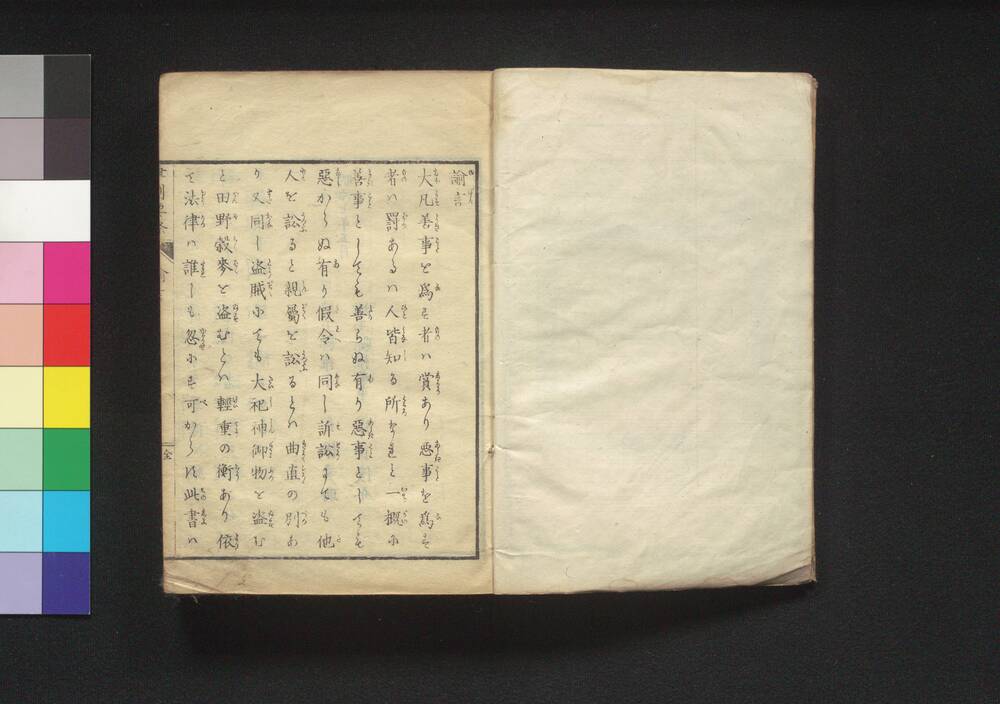 諭言
大凡善事を爲す者ハ賞あり惡事を爲す
者ハ罰あるハ人皆知る所なれと一概に
善事としても善らぬ有り惡事としても
惡からぬ有り假令ハ同し訴訟までも他
人を訟ると親屬を訟るとハ曲直の別あ
り又同し盗賊にても大祀神御物を盗む
と田野穀麥を盗むとハ輕重の衡あり依
て法律ハ誰しも忽にす可からす此書ハ
全